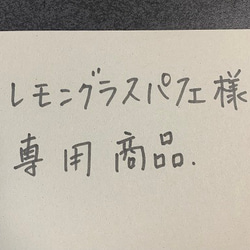 レモングラスパフェ様
専用商品.